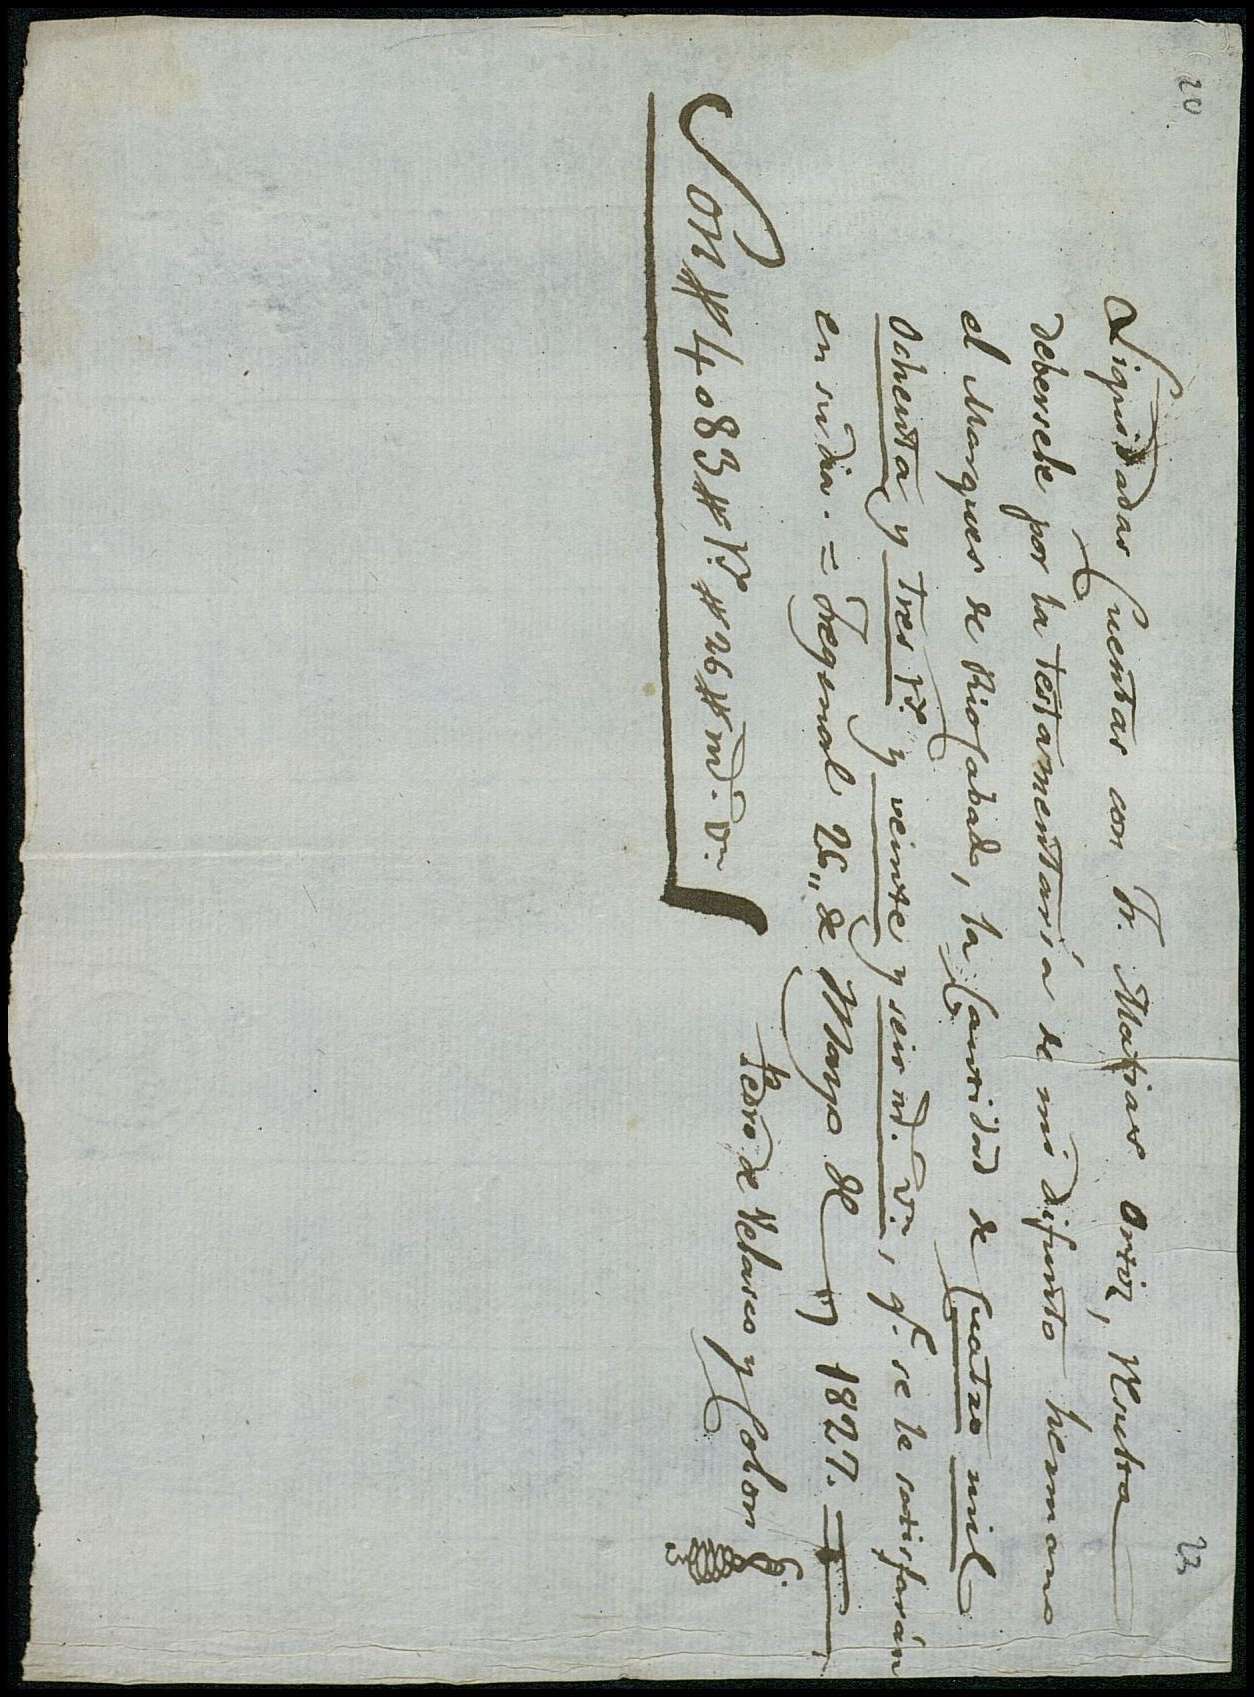 20
23
Liquidadas Cuentas con Fr. Matias Ortiz, resulta
debersele por la testamentaría de mi difunto hermano
el Marques de Riocabado, la Cantidad de Cuatro mil
ochenta y tres rs. y veinte y seis md. vn., qe. se le satisfarán
en su dia. = Fregenal 26,, de Mayo de 1827.
Pedro de Velasco y Colon
Son # 4083 # rs. # 26 # md. vn